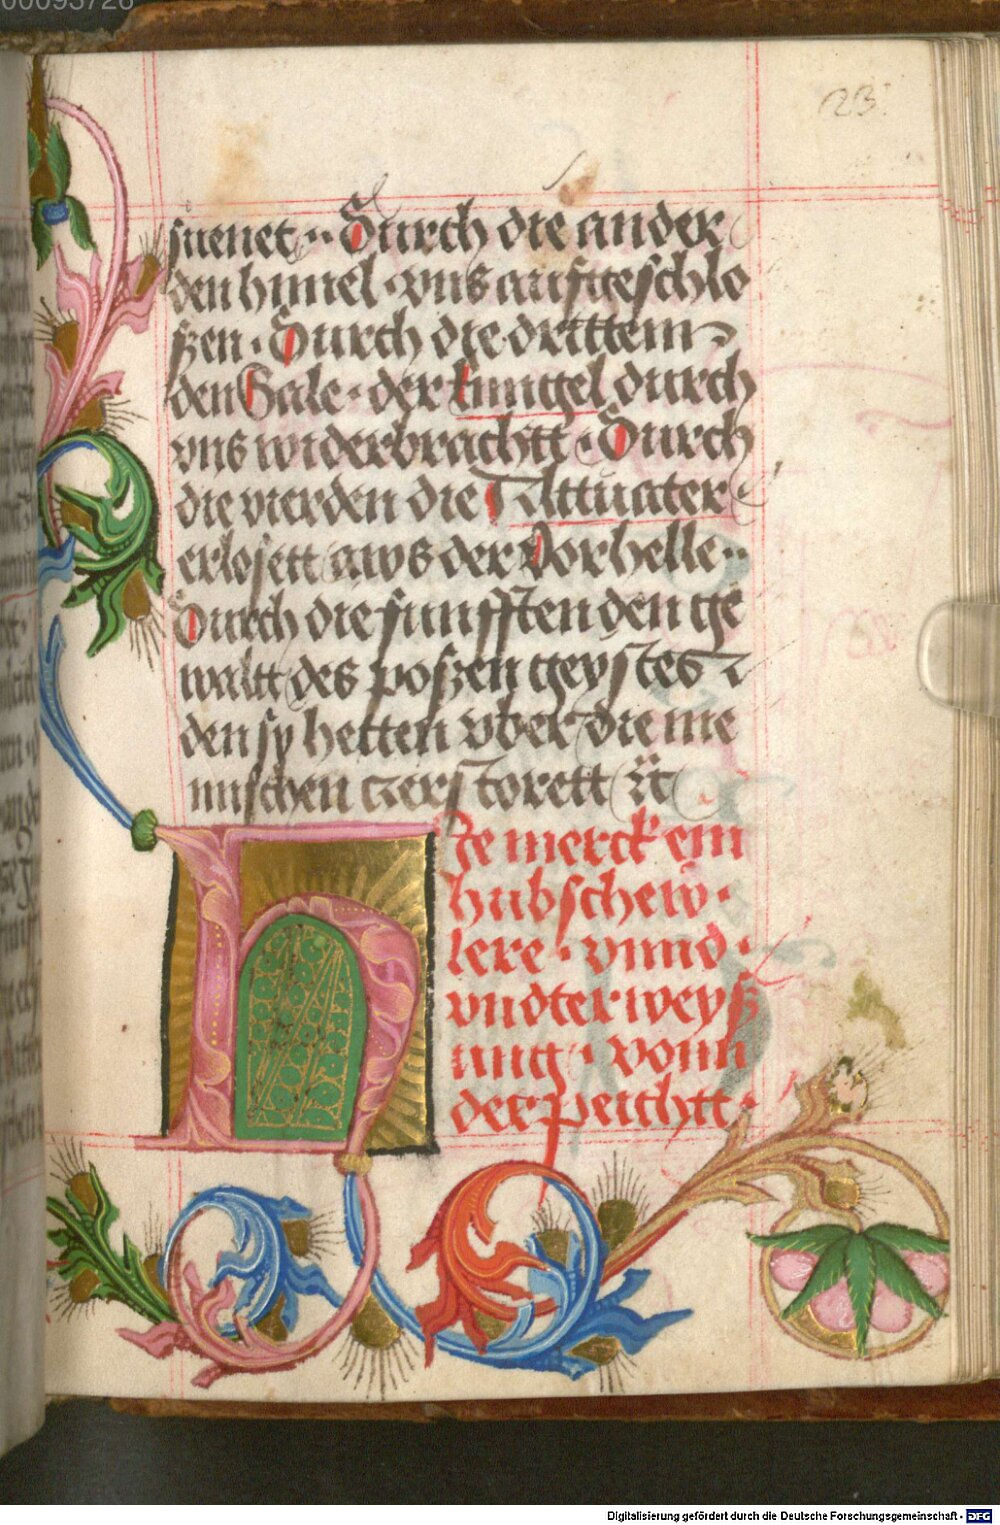 00093728
23
suenet ·· Durch die ander
den himel · vns aufgeschlo
szen · Durch die drittem
den Sale · der Einngel durch
vns widerbrachtt · Durch
die vierden die Alttuater
erlosett aws der Vorhelle ··
Durch die funfften den ge
waltt des poszen geystes
den sy hetten vber die me
nnischen czerstorett
Ie merck ein
hubschew ·
lere · vnnd ·
vndterweysz
ung · vonn
der peichtt ·
Digitalisierung gefördert durch die Deutsche Forschungsgemeinschaft - DFG